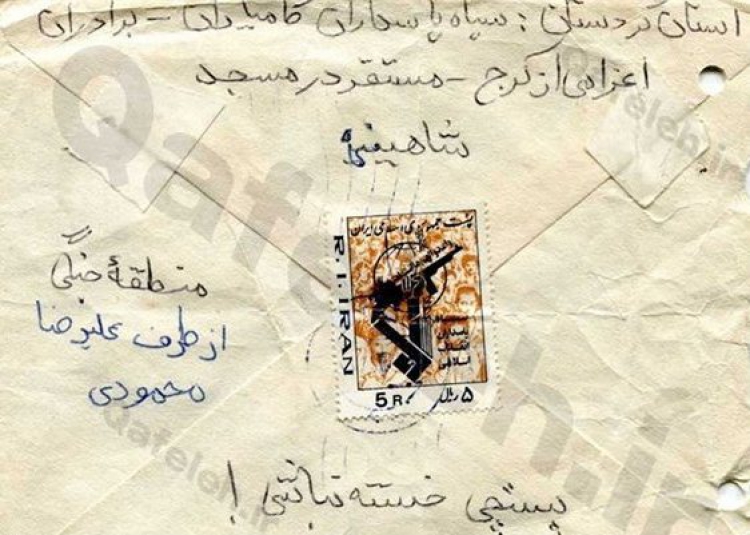 استان کردستان : سپاه پاسداران کامیاران - برادران
اعزامی از کرج - مستقر در مسجد
شاهینی
پست جمهوری اسلامی ایران
R. I. IRAN
سپاه
پاسداران
انقلاب
اسلامی
5 R. ۵ ریال
منطقهٔ جنگی
از طرف علیرضا
محمودی
پستچی خسته نباشی !
Qafeleh.ir
Qafeleh.ir
Qafeleh.ir